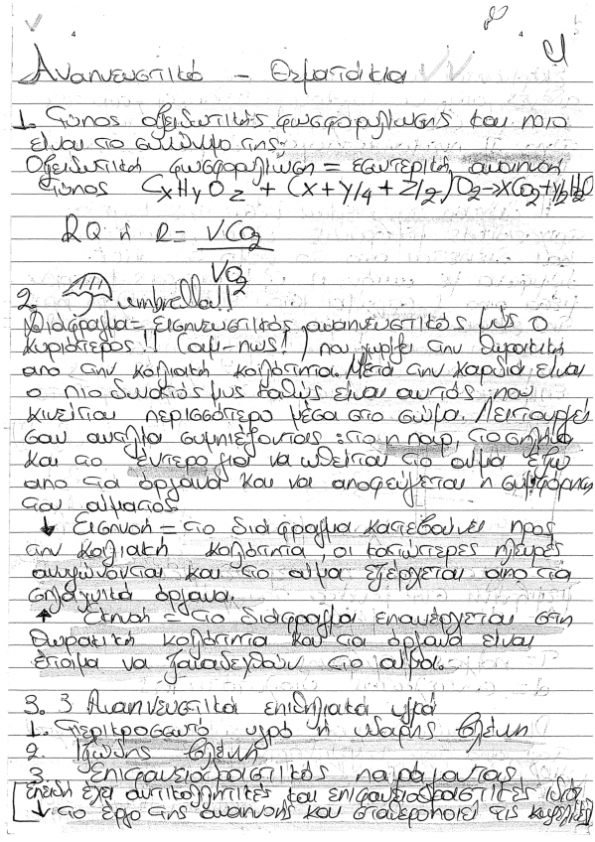 Αναπνευστικό - Θεματάκια
1. Τύπος οξειδωτικής φωσφορυλίωσης και ποιο
είναι το συνώνυμο της;
Οξειδωτική φωσφορυλίωση = εσωτερική αναπνοή
Τύπος CxHyOz + (x+y/4+z/2)O2→xCO2+y/2H2O
RQ ή R = VCO2
VO2
2. umbrella!!
Διάφραγμα = Εισπνευστικός αναπνευστικός μυς ο
κυριότερος!! (αμ-πως!) που χωρίζει την θωρακική
απο την κοιλιακή κοιλότητα. Μετά την καρδιά είναι
ο πιο δυνατός μυς καθώς είναι αυτός που
κινείται περισσότερο μέσα στο σώμα. Λειτουργεί
σαν αντλία συμπιέζοντας το ήπαρ, το σπλήνα
και το έντερο για να ωθείται το αίμα έξω
απο τα όργανα και να αποφεύγεται η συμφόρηση
του αίματος
↓ Εισπνοή = το διάφραγμα κατεβαίνει προς
την κοιλιακή κοιλότητα, οι κατώτερες πλευρές
ανυψώνονται και το αίμα εξέρχεται απο τα
σπλαγχνικά όργανα.
↑ Εκπνοή = το διάφραγμα επανέρχεται στη
θωρακική κοιλότητα και τα όργανα είναι
έτοιμα να ξαναδεχθούν το αίμα.
3. 3 Αναπνευστικά επιθηλιακά υγρά
1. Περικροσσωτό υγρό ή υδαρής βλέννη
2. Ιξώδης βλέννη
3. Επιφανειοδραστικός παράγοντας
Επειδή έχει αντικολλητικές και επιφανειοδραστικές ιδιότ.
↓ το έργο της αναπνοής και σταθεροποιεί τις κυψελίδες